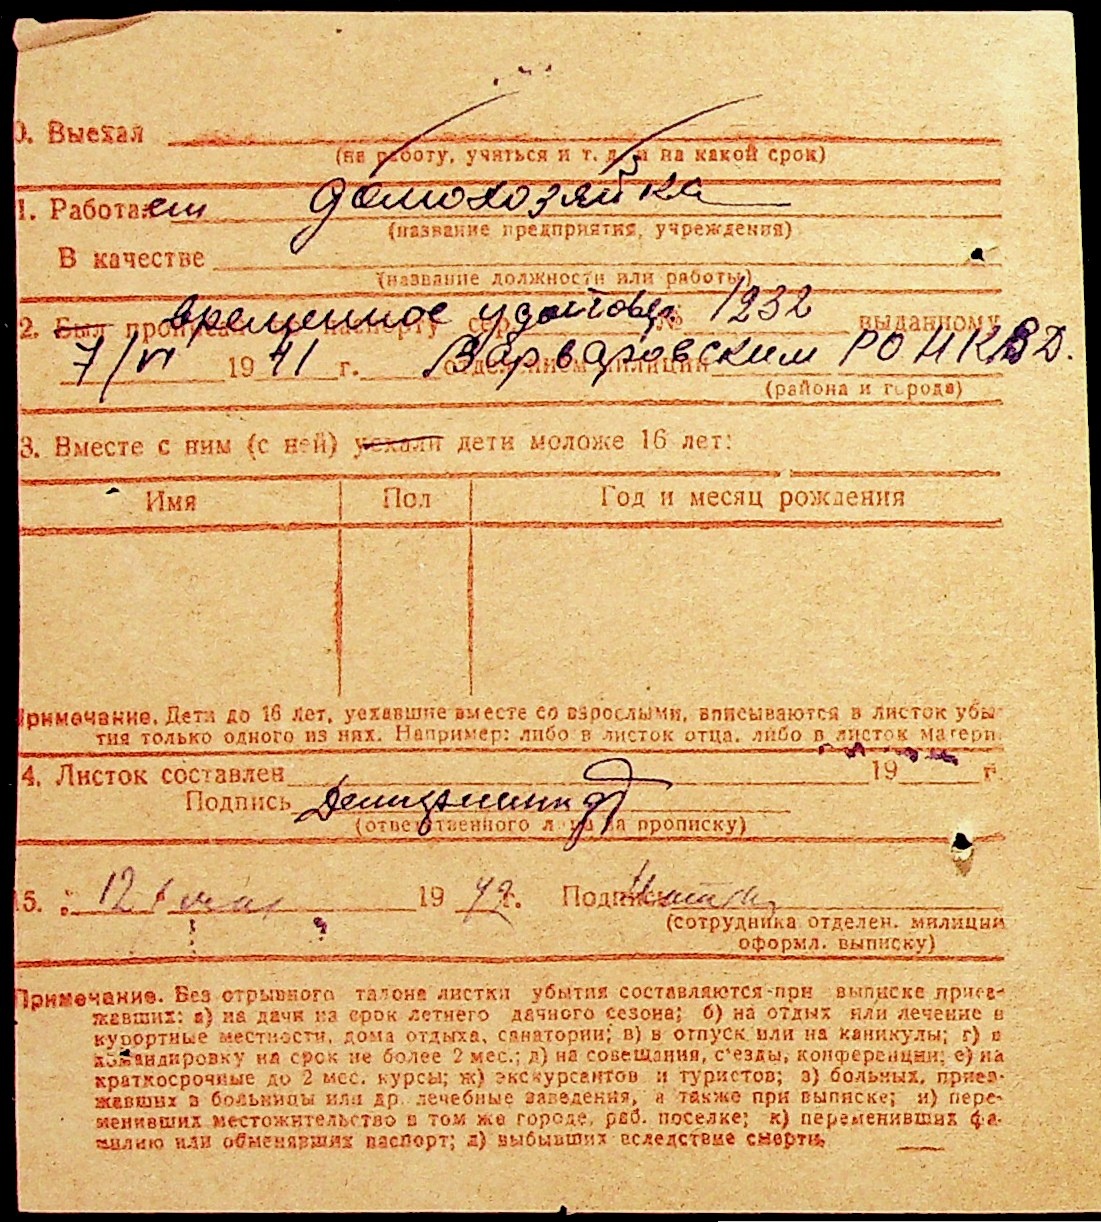 0. Выехал
(на работу, учиться и т. д. и на какой срок)
1. Работает домохозяйка
(название предприятия, учреждения)
В качестве
(название должности или работы)
временное удостовер. 1232
2. Был прописан по паспорту сер. № выданному
7/VI 1941 г. отделением милиции Варваровским РО НКВД.
(района и города)
3. Вместе с ним (с ней) уехали дети моложе 16 лет:
Имя Пол Год и месяц рождения
Примечание. Дети до 16 лет, уехавшие вместе со взрослыми, вписываются в листок убы-
тия только одного из них. Например: либо в листок отца, либо в листок матери.
4. Листок составлен 19 г.
Подпись
(ответственного лица за прописку)
15. 12 мая 1942 г. Подпись
(сотрудника отделен. милиции
оформл. выписку)
Примечание. Без отрывного талона листки убытия составляются при выписке приез-
жавших: а) на дачи на срок летнего дачного сезона; б) на отдых или лечение в
курортные местности, дома отдыха, санатории; в) в отпуск или на каникулы; г) в
командировку на срок не более 2 мес.; д) на совещания, с'езды, конференции; е) на
краткосрочные до 2 мес. курсы; ж) экскурсантов и туристов; з) больных, приез-
жавших в больницы или др. лечебные заведения, а также при выписке; и) пере-
менивших местожительство в том же городе, раб. поселке; к) переменивших фа-
милию или обменявших паспорт; л) выбывших вследствие смерти.